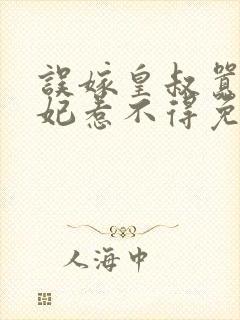 誤嫁皇叔囂
妃惹不得免
人海中